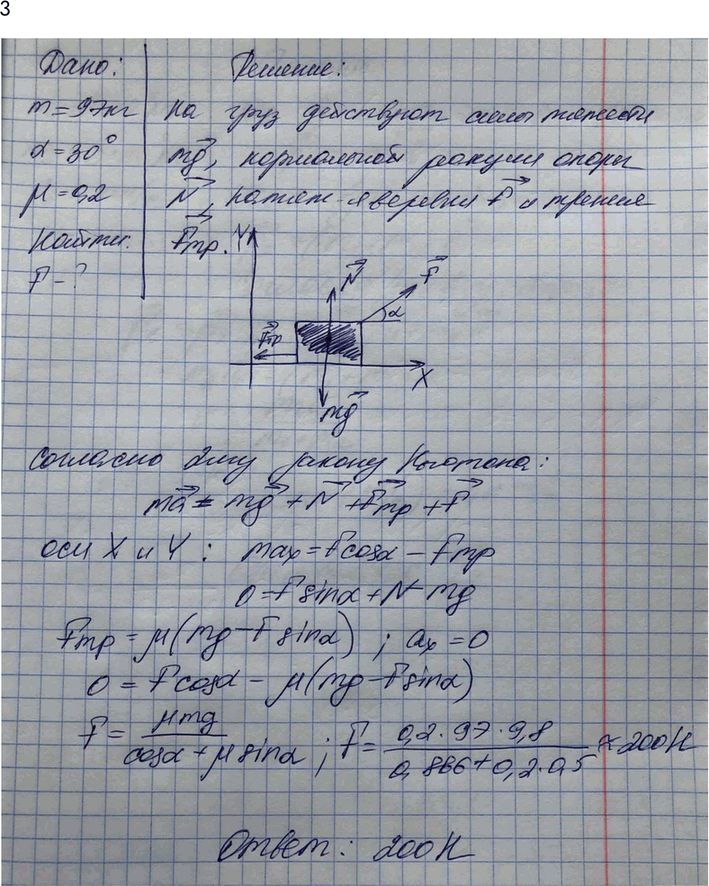 3
Дано: Решение:
m = 97кг на груз действуют силы тяжести
α = 30° mg⃗, нормальной реакции опоры
μ = 0,2 N⃗, натяж-я веревки F⃗ и трения
Найти: F⃗тр.
F - ?
Y
N⃗
F⃗
α
F⃗тр
X
mg⃗
Согласно 2му закону Ньютона:
ma⃗ = mg⃗ + N⃗ + F⃗тр + F⃗
оси X и Y : max = Fcosα - Fтр
0 = Fsinα + N - mg
Fтр = μ(mg - Fsinα) ; ax = 0
0 = Fcosα - μ(mg - Fsinα)
F = μmg / (cosα + μ sinα) ; F = 0,2 · 97 · 9,8 / (0,866 + 0,2 · 0,5) ≈ 200Н
Ответ: 200Н